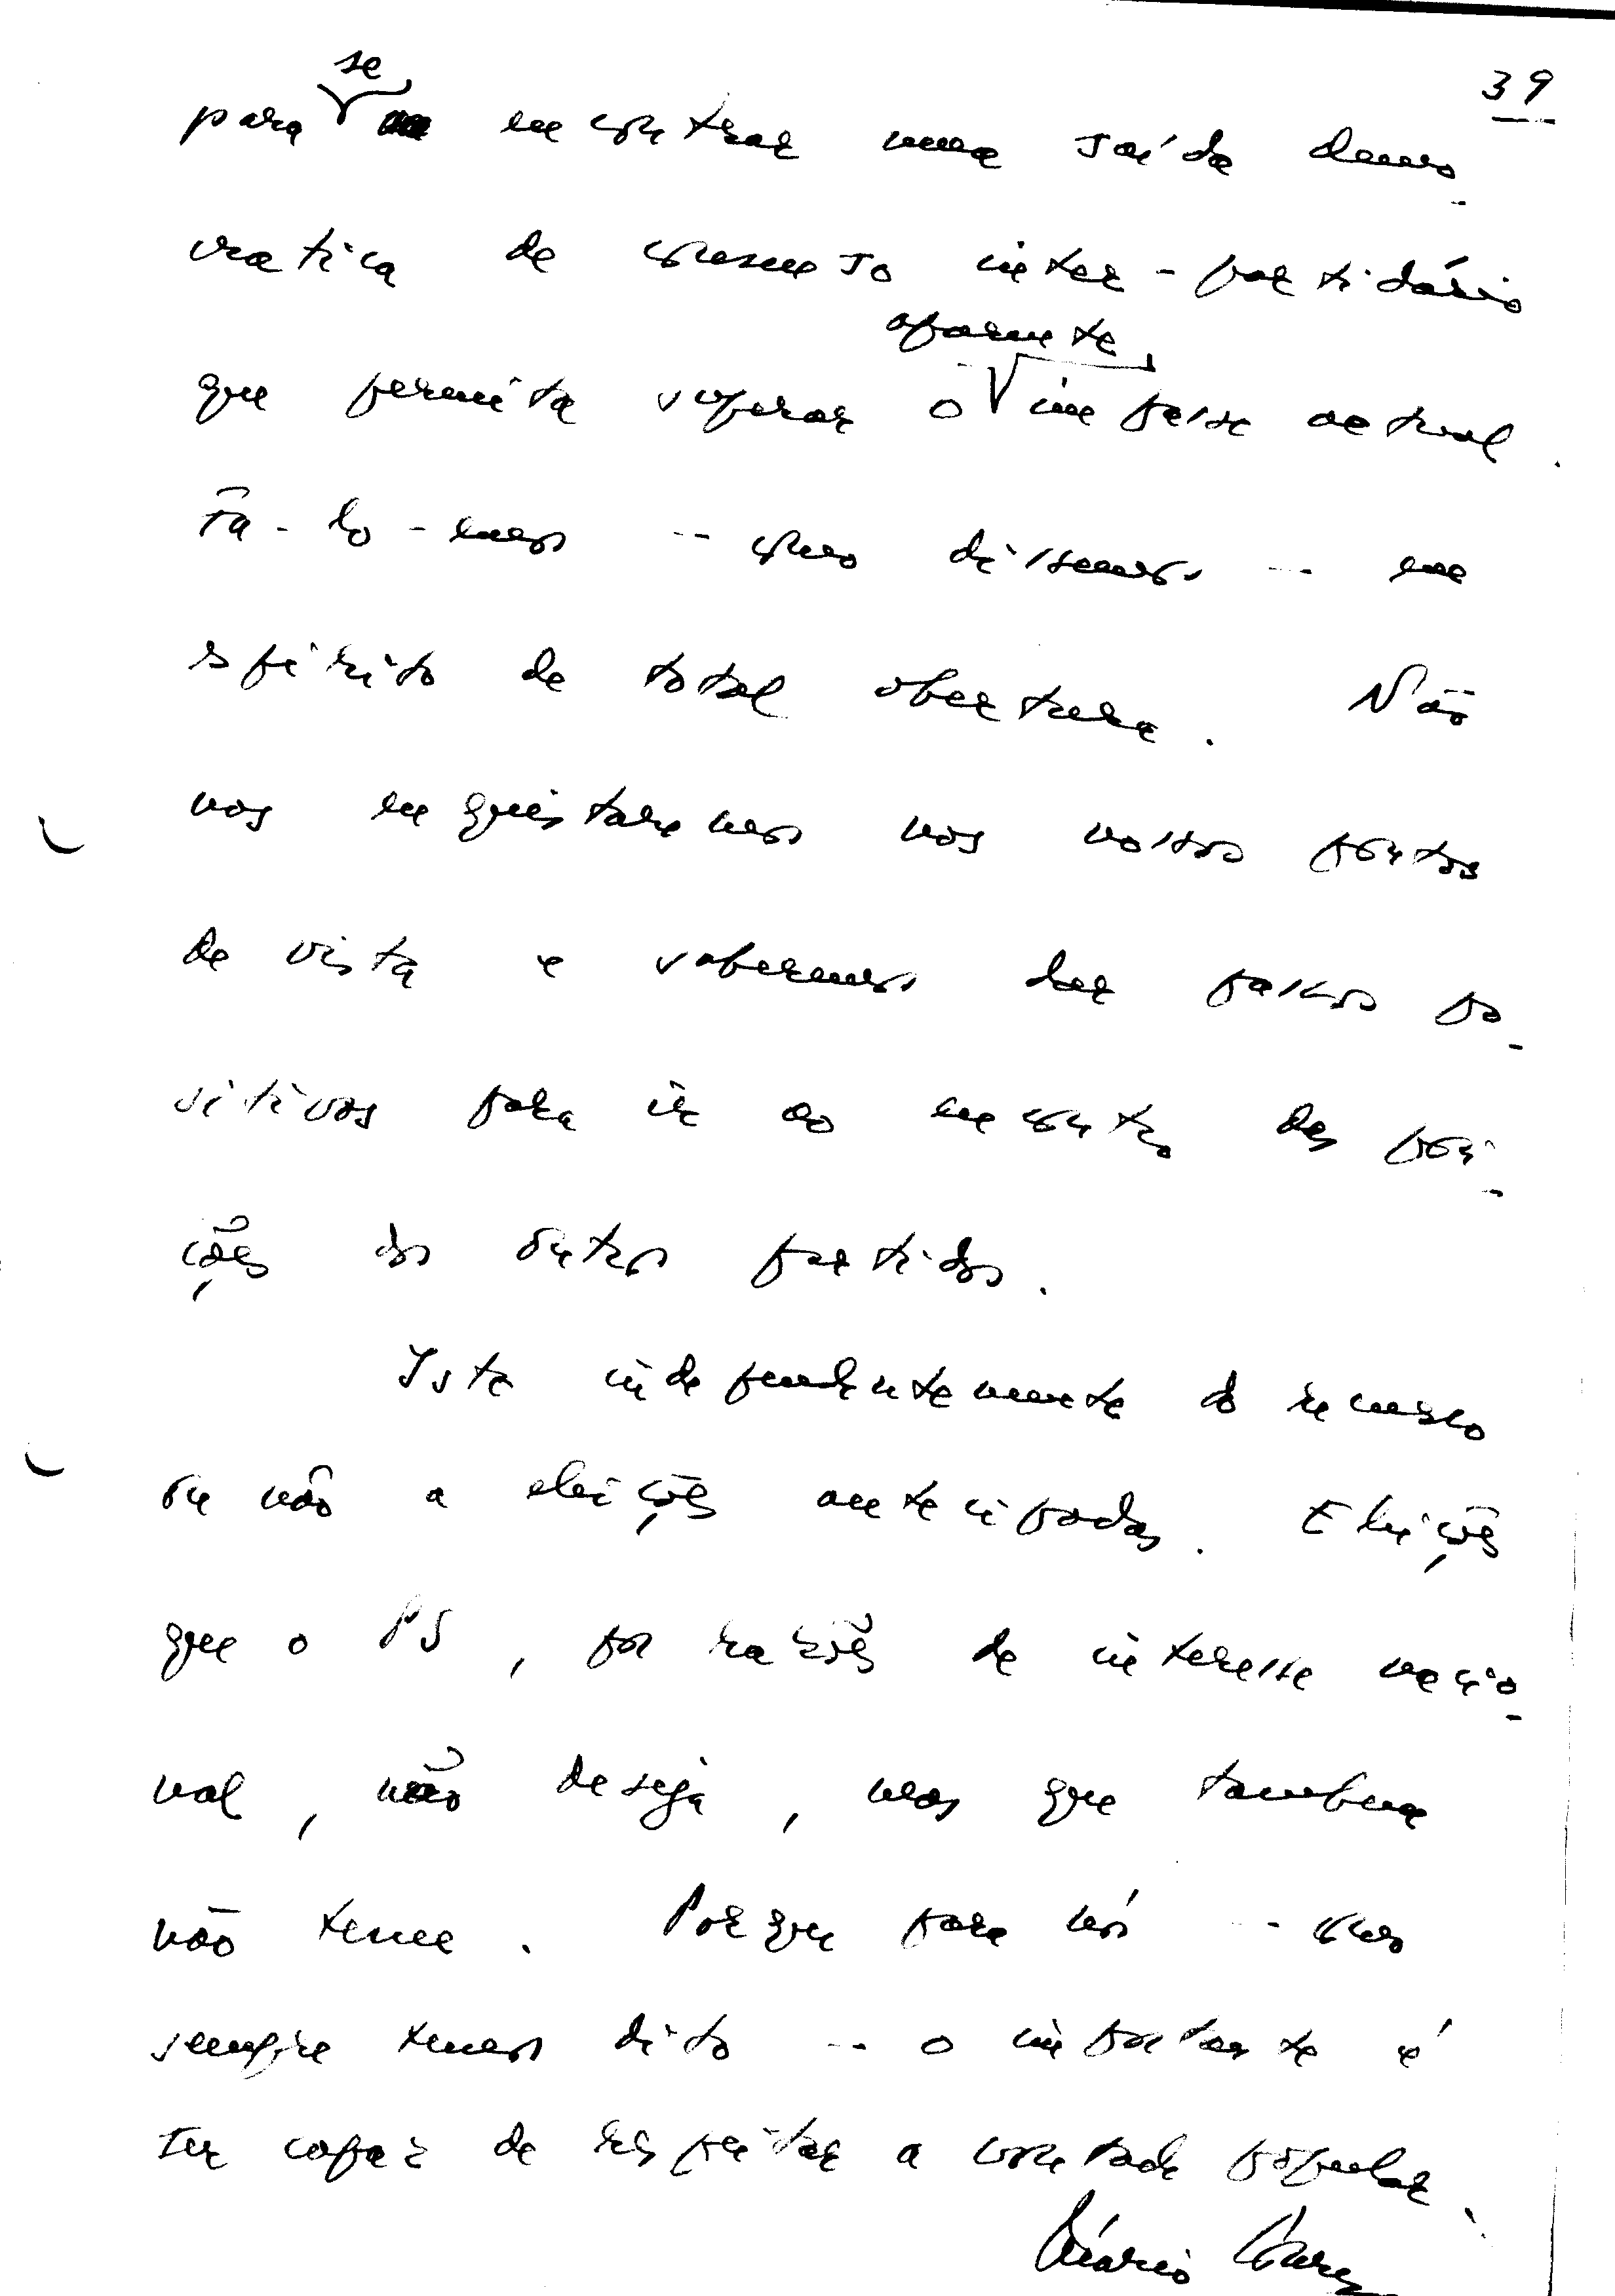 39
se
para encontrar uma saída demo-
cratica de consenso inter-partidário
aparente
que permita superar o impasse actual.
Fá-lo-emos -- como dissemos -- em
espírito de total abertura. Não
nos enquistaremos nos nossos pontos
de vista e saberemos dar passos po-
sitivos para ir ao encontro das posi-
ções dos outros partidos.
Isto independentemente do recurso
ou não a eleições antecipadas. Eleições
que o PS, por razões de interesse nacio-
nal, não deseja, mas que tambem
não teme. Porque para nós -- como
sempre temos dito -- o importante é
ser capaz de respeitar a vontade popular.
Mário Soares